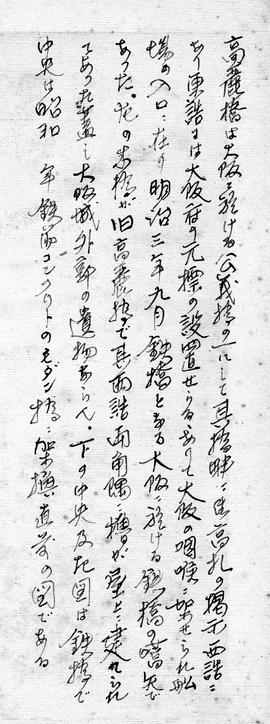 高麗橋は大阪に於ける公義橋の一にして其橋畔に在高札の掲示西詰に
あり東詰には大阪府の元標の設置せらるありて大阪の咽喉に架せられ船
場の入口に在り明治三年九月鉄橋となる大阪に於ける鉄橋の嚆矢で
あった。左の木橋が旧高麗橋で其西詰両角隅に櫓が塁上に建れられ
てあった蓋し大阪城外郭の遺物ならん。下の中央及左図は鉄橋で
中央は昭和 年鉄筋コンクリートのモダン橋に架換直前の図である